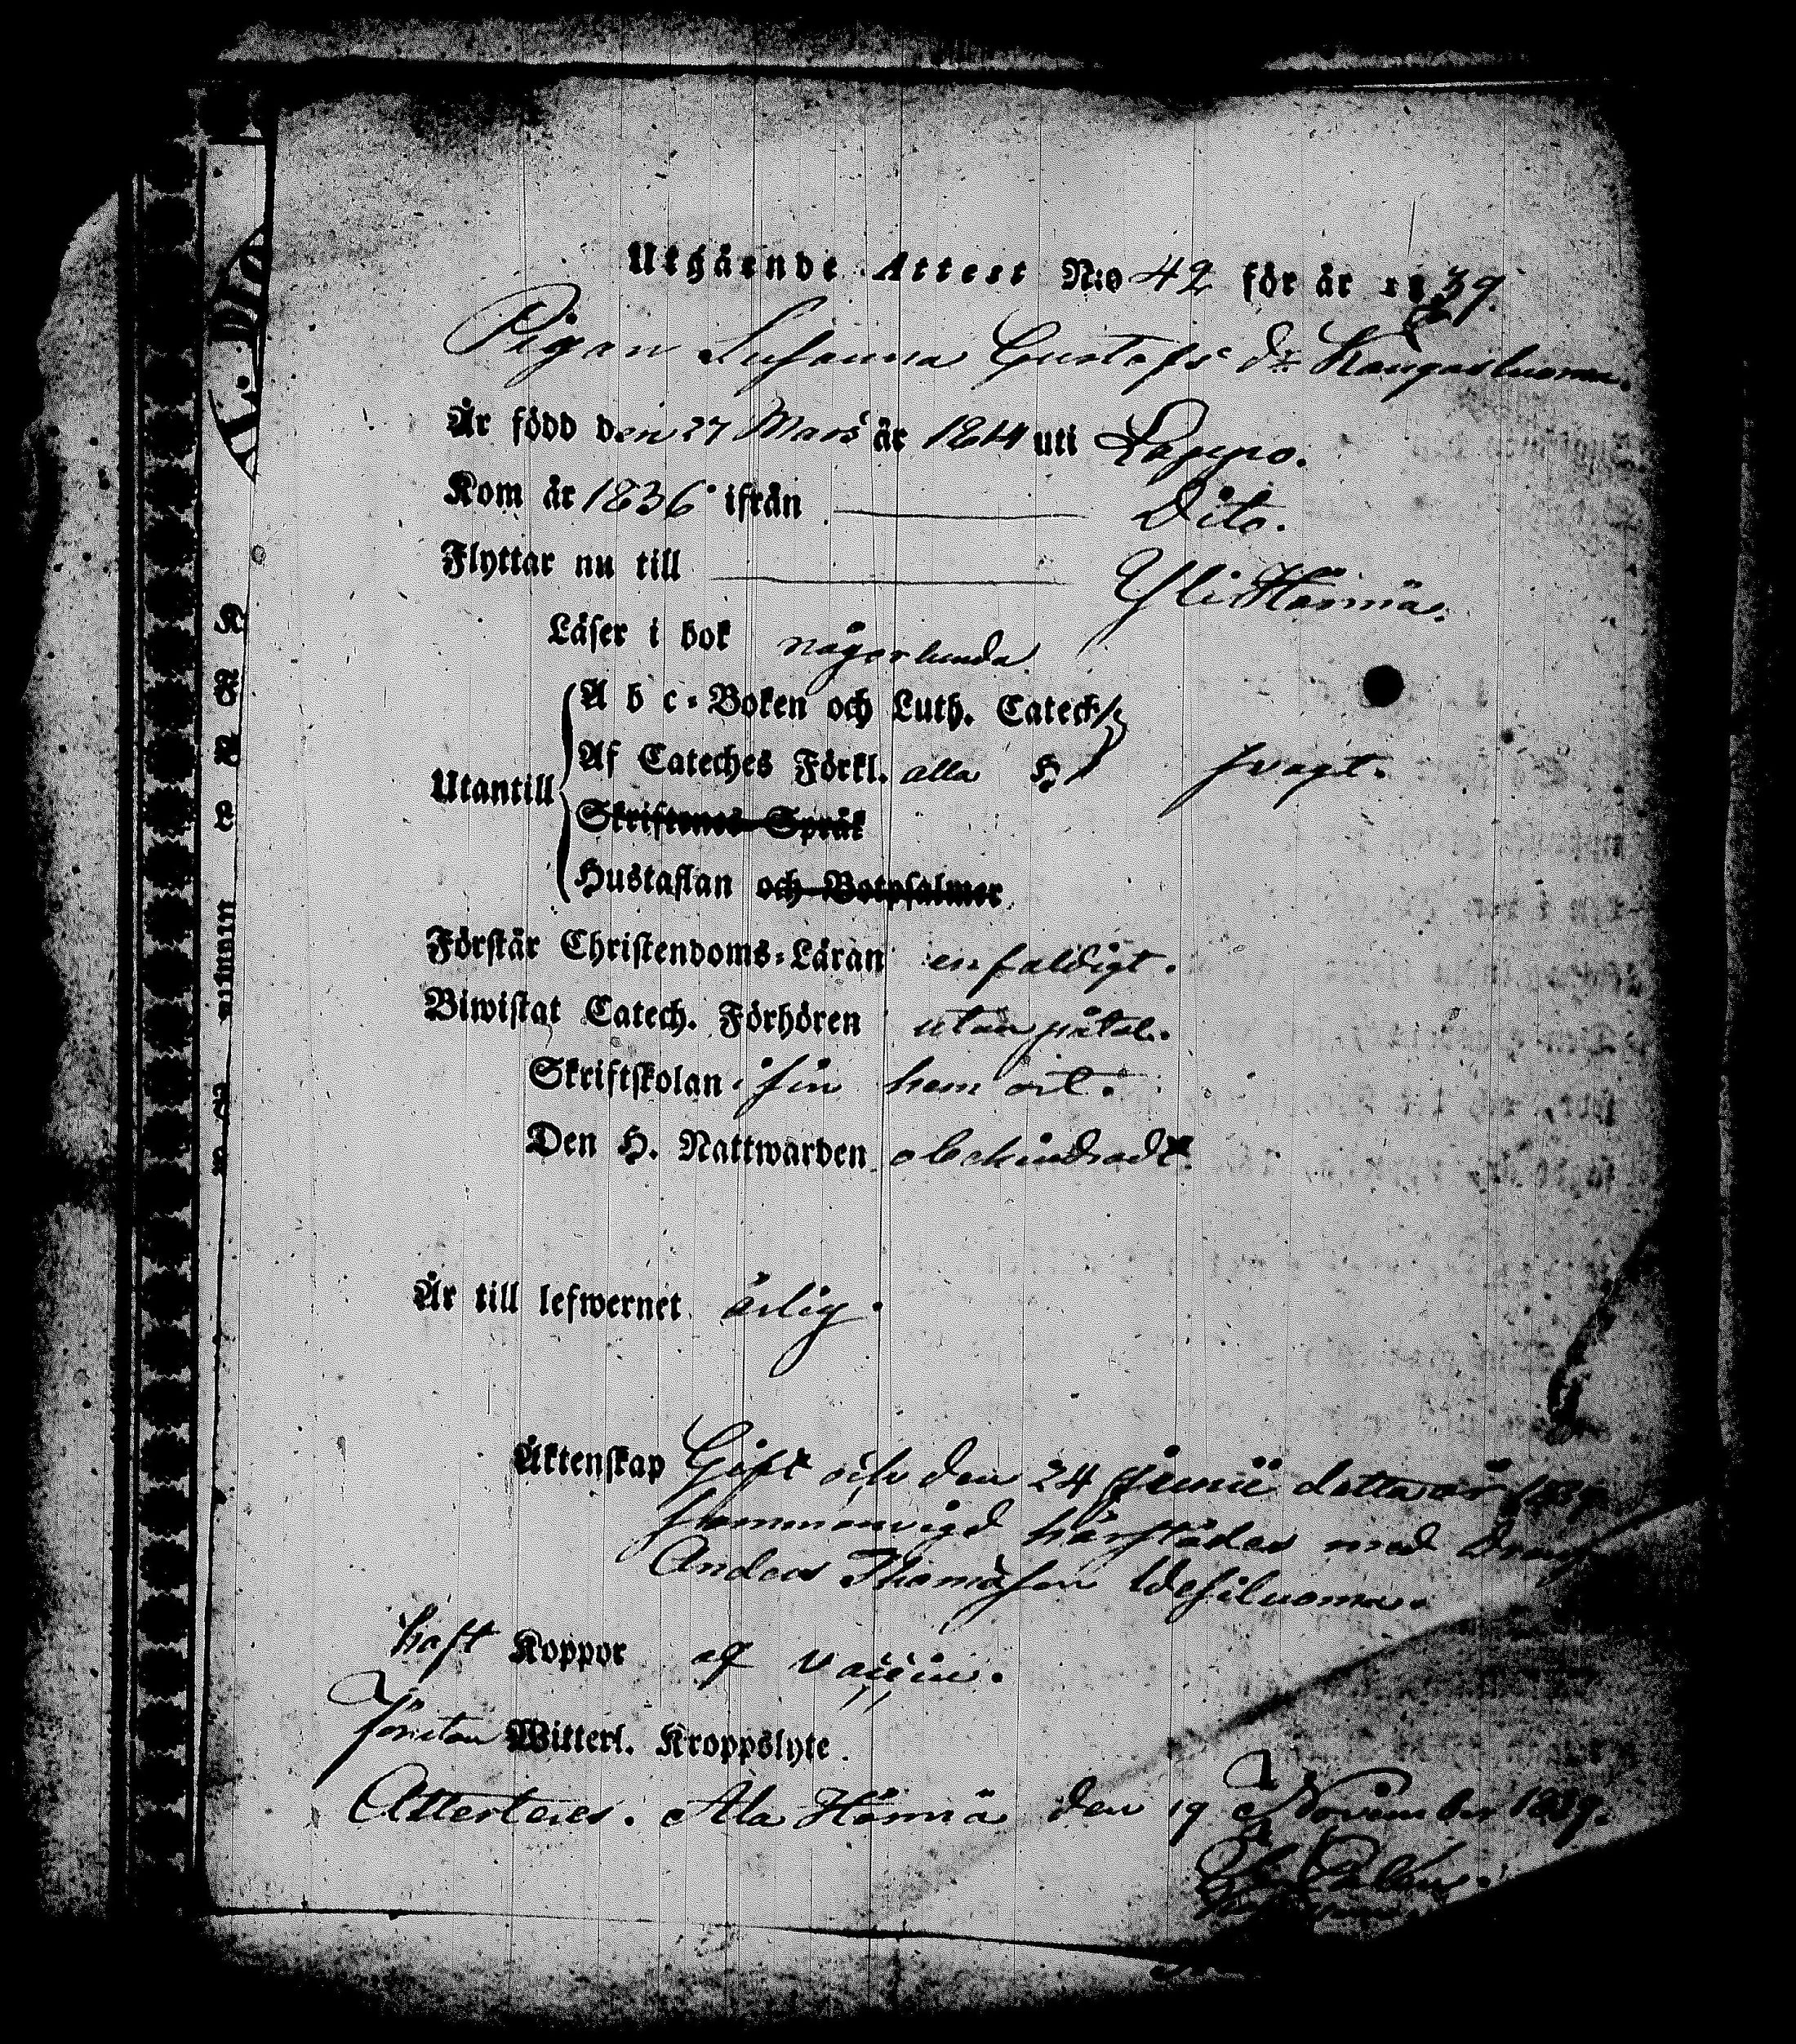 Utgående Attest N:o 42 för år 1839.
Pigan Susanna Gustafs dr Kangasluoma.
Är född den 27 Mars år 1814 uti Lappo.
Kom år 1836 ifrån Dito.
Flyttar nu till Yli Härmä.
Läser i bok någorlunda
A b c-Boken och Luth. Catech.
Utantill Af Cateches Förkl. alla H svagt.
Skriftenes Språk
Hustaflan och Botpsalmer
Förstår Christendoms-Läran enfaldigt.
Biwistat Catech. Förhören utan påtal.
Skriftskolan i sin hem ort.
Den H. Nattwarden obehindradt.
Är till lefwernet ärlig.
Äktenskap Gift och den 24 Junii detta år 1839
sammanvigd härstädes med
Anders Thomasson Wesiluoma.
haft Koppor af vaccin.
förutan Witterl. Kroppslyte.
Attesteres. Ala Härmä den 19 November 1839.